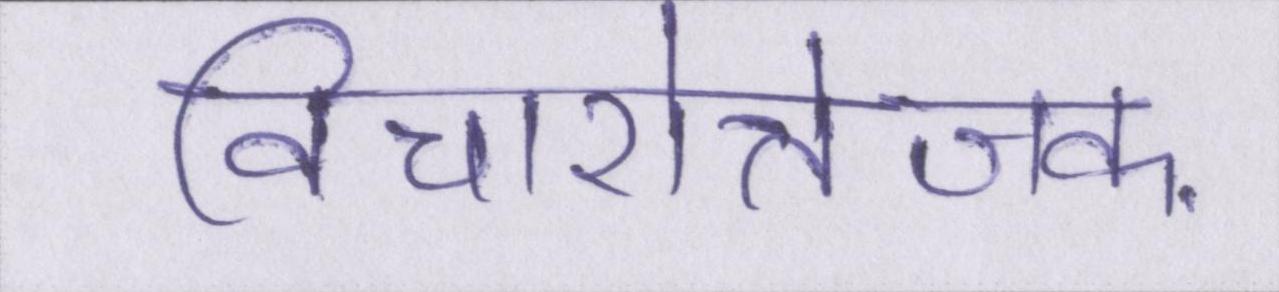 विचारोत्तेजक